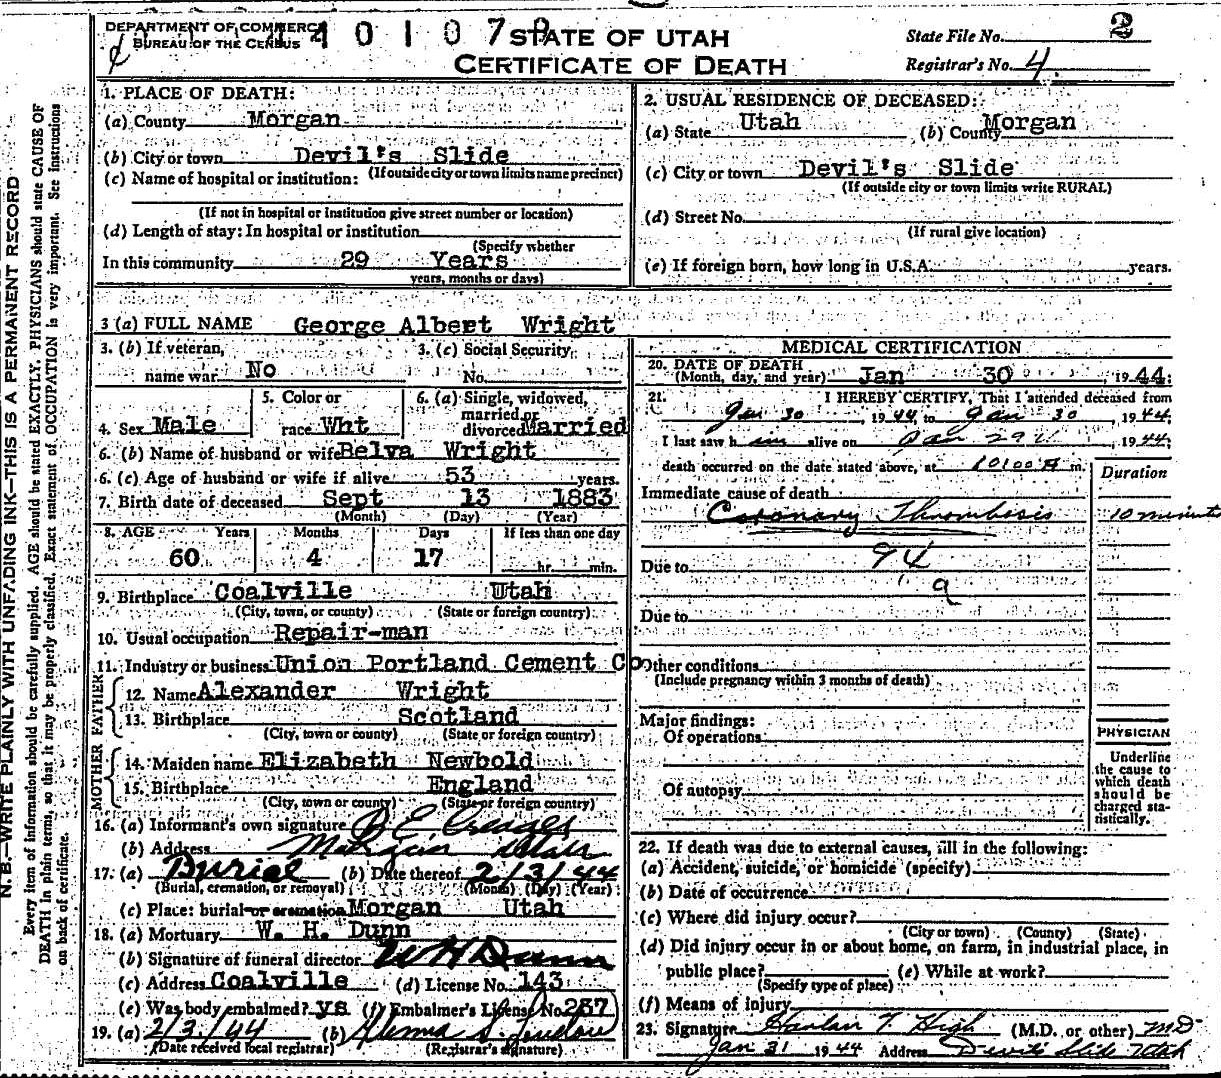 DEPARTMENT OF COMMERCE
BUREAU OF THE CENSUS
STATE OF UTAH
CERTIFICATE OF DEATH
State File No. 2
Registrar's No. 4
N. B.—WRITE PLAINLY WITH UNFADING INK—THIS IS A PERMANENT RECORD
Every item of information should be carefully supplied. AGE should be stated EXACTLY. PHYSICIANS should state CAUSE OF
DEATH in plain terms, so that it may be properly classified. Exact statement of OCCUPATION is very important. See instructions
on back of certificate.
1. PLACE OF DEATH:
(a) County Morgan
(b) City or town Devil's Slide
(If outside city or town limits name precinct)
(c) Name of hospital or institution:
(If not in hospital or institution give street number or location)
(d) Length of stay: In hospital or institution
(Specify whether
In this community 29 Years
years, months or days)
2. USUAL RESIDENCE OF DECEASED:
(a) State Utah (b) County Morgan
(c) City or town Devil's Slide
(If outside city or town limits write RURAL)
(d) Street No.
(If rural give location)
(e) If foreign born, how long in U.S.A. years.
3 (a) FULL NAME George Albert Wright
3. (b) If veteran, name war No
3. (c) Social Security No.
4. Sex Male
5. Color or race Wht
6. (a) Single, widowed, married or divorced Married
6. (b) Name of husband or wife Belva Wright
6. (c) Age of husband or wife if alive 53 years.
7. Birth date of deceased Sept 13 1883
(Month) (Day) (Year)
8. AGE Years Months Days If less than one day
60 4 17 hr. min.
9. Birthplace Coalville Utah
(City, town, or county) (State or foreign country)
10. Usual occupation Repair-man
11. Industry or business Union Portland Cement Co
FATHER
12. Name Alexander Wright
13. Birthplace Scotland
(City, town or county) (State or foreign country)
MOTHER
14. Maiden name Elizabeth Newbold
15. Birthplace England
(City, town or county) (State or foreign country)
16. (a) Informant's own signature
(b) Address Morgan Utah
17. (a) Burial (b) Date thereof 2/3/44
(Burial, cremation, or removal) (Month) (Day) (Year)
(c) Place: burial or cremation Morgan Utah
18. (a) Mortuary W. H. Dunn
(b) Signature of funeral director W H Dunn
(c) Address Coalville (d) License No. 143
(e) Was body embalmed? ys (f) Embalmer's License No. 257
19. (a) 2/3/44 (b)
(Date received local registrar) (Registrar's signature)
MEDICAL CERTIFICATION
20. DATE OF DEATH
(Month, day, and year) Jan 30, 1944:
21. I HEREBY CERTIFY, That I attended deceased from
Jan 30, 1944, to Jan 30, 1944,
I last saw him alive on Jan 29, 1944;
death occurred on the date stated above, at 10:00 A m.
Duration
Immediate cause of death
Coronary Thrombosis 10 minutes
Due to 94
a
Due to
Other conditions
(Include pregnancy within 3 months of death)
Major findings:
Of operations
Of autopsy
PHYSICIAN
Underline
the cause to
which death
should be
charged sta-
tistically.
22. If death was due to external causes, fill in the following:
(a) Accident, suicide, or homicide (specify)
(b) Date of occurrence
(c) Where did injury occur?
(City or town) (County) (State)
(d) Did injury occur in or about home, on farm, in industrial place, in
public place? (e) While at work?
(Specify type of place)
(f) Means of injury
23. Signature Harlan T. High (M.D. or other) MD
Jan 31 1944 Address Devil's Slide Utah